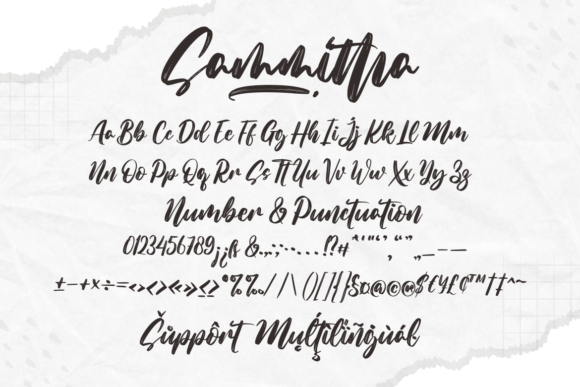 Sammitha
Aa Bb Cc Dd Ee Ff Gg Hh Ii Jj Kk Ll Mm
Nn Oo Pp Qq Rr Ss Tt Uu Vv Ww Xx Yy Zz
Number & Punctuation
0123456789¡¿ß &.,:;-...!?# *"'"‘’ “” ‚„_–—
±-+×÷=<><>«»≤≥°%‰/|\()[]{}§¤@©®$€¥£¢™†‡^~
Šůppôrt Mųļţíľïñġùáł